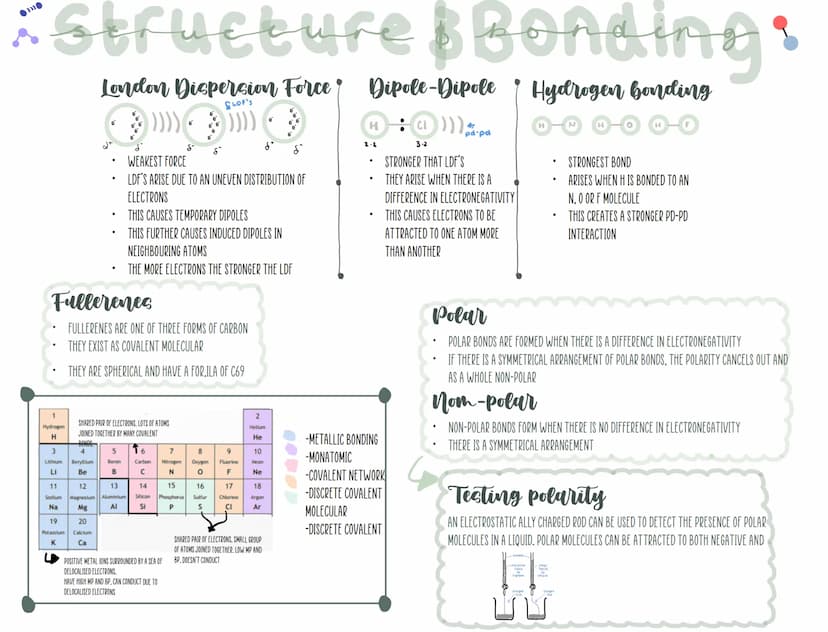 Structure & Bonding
London Dispersion Force
LDF's
δ+ δ- δ+ δ-
WEAKEST FORCE
LDF'S ARISE DUE TO AN UNEVEN DISTRIBUTION OF
ELECTRONS
THIS CAUSES TEMPORARY DIPOLES
THIS FURTHER CAUSES INDUCED DIPOLES IN
NEIGHBOURING ATOMS
THE MORE ELECTRONS THE STRONGER THE LDF
Dipole-Dipole
H Cl
pd-pd
2.2 3.2
STRONGER THAT LDF'S
THEY ARISE WHEN THERE IS A
DIFFERENCE IN ELECTRONEGATIVITY
THIS CAUSES ELECTRONS TO BE
ATTRACTED TO ONE ATOM MORE
THAN ANOTHER
Hydrogen bonding
H N H O H F
STRONGEST BOND
ARISES WHEN H IS BONDED TO AN
N, O OR F MOLECULE
THIS CREATES A STRONGER PD-PD
INTERACTION
Fullerenes
FULLERENES ARE ONE OF THREE FORMS OF CARBON
THEY EXIST AS COVALENT MOLECULAR
THEY ARE SPHERICAL AND HAVE A FOR,ILA OF C69
Polar
POLAR BONDS ARE FORMED WHEN THERE IS A DIFFERENCE IN ELECTRONEGATIVITY
IF THERE IS A SYMMETRICAL ARRANGEMENT OF POLAR BONDS, THE POLARITY CANCELS OUT AND
AS A WHOLE NON-POLAR
Nom-polar
NON-POLAR BONDS FORM WHEN THERE IS NO DIFFERENCE IN ELECTRONEGATIVITY
THERE IS A SYMMETRICAL ARRANGEMENT
SHARED PAIR OF ELECTRONS, LOTS OF ATOMS
JOINED TOGETHER BY MANY COVALENT
BONDS
1 2
Hydrogen Helium
H He
3 4 5 6 7 8 9 10
Lithium Beryllium Boron Carbon Nitrogen Oxygen Fluorine Neon
Li Be B C N O F Ne
11 12 13 14 15 16 17 18
Sodium Magnesium Aluminium Silicon Phosphorus Sulfur Chlorine Argon
Na Mg Al Si P S Cl Ar
19 20
Potassium Calcium
K Ca
-METALLIC BONDING
-MONATOMIC
-COVALENT NETWORK
-DISCRETE COVALENT
MOLECULAR
-DISCRETE COVALENT
SHARED PAIR OF ELECTRONS, SMALL GROUP
OF ATOMS JOINED TOGETHER, LOW MP AND
BP, DOESN'T CONDUCT
POSITIVE METAL IONS SURROUNDED BY A SEA OF
DELOCALISED ELECTRONS,
HAVE HIGH MP AND BP, CAN CONDUCT DUE TO
DELOCALISED ELECTRONS
Testing polarity
AN ELECTROSTATIC ALLY CHARGED ROD CAN BE USED TO DETECT THE PRESENCE OF POLAR
MOLECULES IN A LIQUID. POLAR MOLECULES CAN BE ATTRACTED TO BOTH NEGATIVE AND